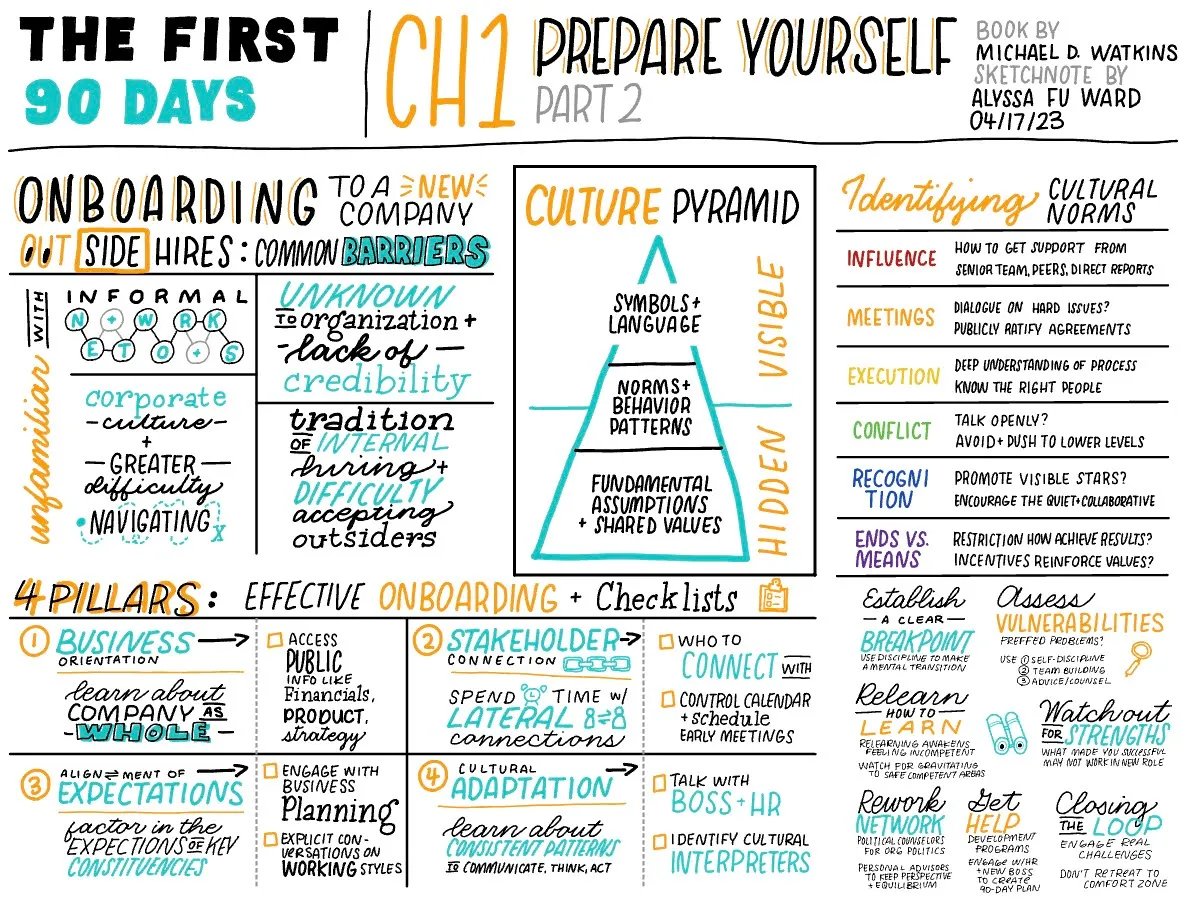 THE FIRST
90 DAYS
CH1
PREPARE YOURSELF
PART 2
BOOK BY
MICHAEL D. WATKINS
SKETCHNOTE BY
ALYSSA FU WARD
04/17/23
ONBOARDING TO A NEW
COMPANY
OUTSIDE HIRES: COMMON BARRIERS
unfamiliar WITH
INFORMAL
N+WRK
ETO+S
corporate
-culture-
+
-GREATER-
difficulty
NAVIGATING X
UNKNOWN
TO organization +
-lack of-
credibility
tradition
OF INTERNAL
hiring +
DIFFICULTY
accepting
outsiders
CULTURE PYRAMID
SYMBOLS +
LANGUAGE
NORMS +
BEHAVIOR
PATTERNS
FUNDAMENTAL
ASSUMPTIONS
+ SHARED VALUES
VISIBLE
HIDDEN
Identifying CULTURAL
NORMS
INFLUENCE
HOW TO GET SUPPORT FROM
SENIOR TEAM, PEERS, DIRECT REPORTS
MEETINGS
DIALOGUE ON HARD ISSUES?
PUBLICLY RATIFY AGREEMENTS
EXECUTION
DEEP UNDERSTANDING OF PROCESS
KNOW THE RIGHT PEOPLE
CONFLICT
TALK OPENLY?
AVOID + PUSH TO LOWER LEVELS
RECOGNI
TION
PROMOTE VISIBLE STARS?
ENCOURAGE THE QUIET+COLLABORATIVE
ENDS VS.
MEANS
RESTRICTION HOW ACHIEVE RESULTS?
INCENTIVES REINFORCE VALUES?
4 PILLARS: EFFECTIVE ONBOARDING + Checklists
1 BUSINESS
ORIENTATION
learn about
COMPANY AS
-WHOLE-
ACCESS
PUBLIC
INFO LIKE
Financials,
PRODUCT,
strategy
2 STAKEHOLDER
CONNECTION
SPEND TIME W/
LATERAL
connections
WHO TO
CONNECT WITH
CONTROL CALENDAR
+ schedule
EARLY MEETINGS
3 ALIGN⇌MENT OF
EXPECTATIONS
factor in the
EXPECTIONS OF KEY
CONSTITUENCIES
ENGAGE WITH
BUSINESS
Planning
EXPLICIT CON-
VERSATIONS ON
WORKING STYLES
4 CULTURAL
ADAPTATION
learn about
CONSISTENT PATTERNS
TO COMMUNICATE, THINK, ACT
TALK WITH
BOSS + HR
IDENTIFY CULTURAL
INTERPRETERS
Establish
- A CLEAR -
BREAKPOINT
USE DISCIPLINE TO MAKE
A MENTAL TRANSITION
Assess
VULNERABILITIES
PREFFED PROBLEMS?
USE 1 SELF-DISCIPLINE
2 TEAM BUILDING
3 ADVICE/COUNSEL
Relearn
-HOW TO-
LEARN
RELEARNING AWAKENS
FEELING INCOMPETENT
WATCH FOR GRAVITATING
TO SAFE COMPETENT AREAS
Watch out
FOR STRENGTHS
WHAT MADE YOU SUCCESSFUL
MAY NOT WORK IN NEW ROLE
Rework
NETWORK
POLITICAL COUNSELORS
FOR ORG POLITICS
PERSONAL ADVISORS
TO KEEP PERSPECTIVE
+ EQUILIBRIUM
Get
HELP
DEVELOPMENT
PROGRAMS
ENGAGE W/HR
+NEW BOSS
TO CREATE
90-DAY PLAN
Closing
THE LOOP
ENGAGE REAL
CHALLENGES
DON'T RETREAT TO
COMFORT ZONE